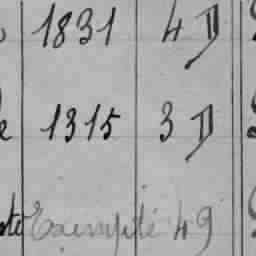 1831 4 D
e 1315 3 D
ste Exempté 49